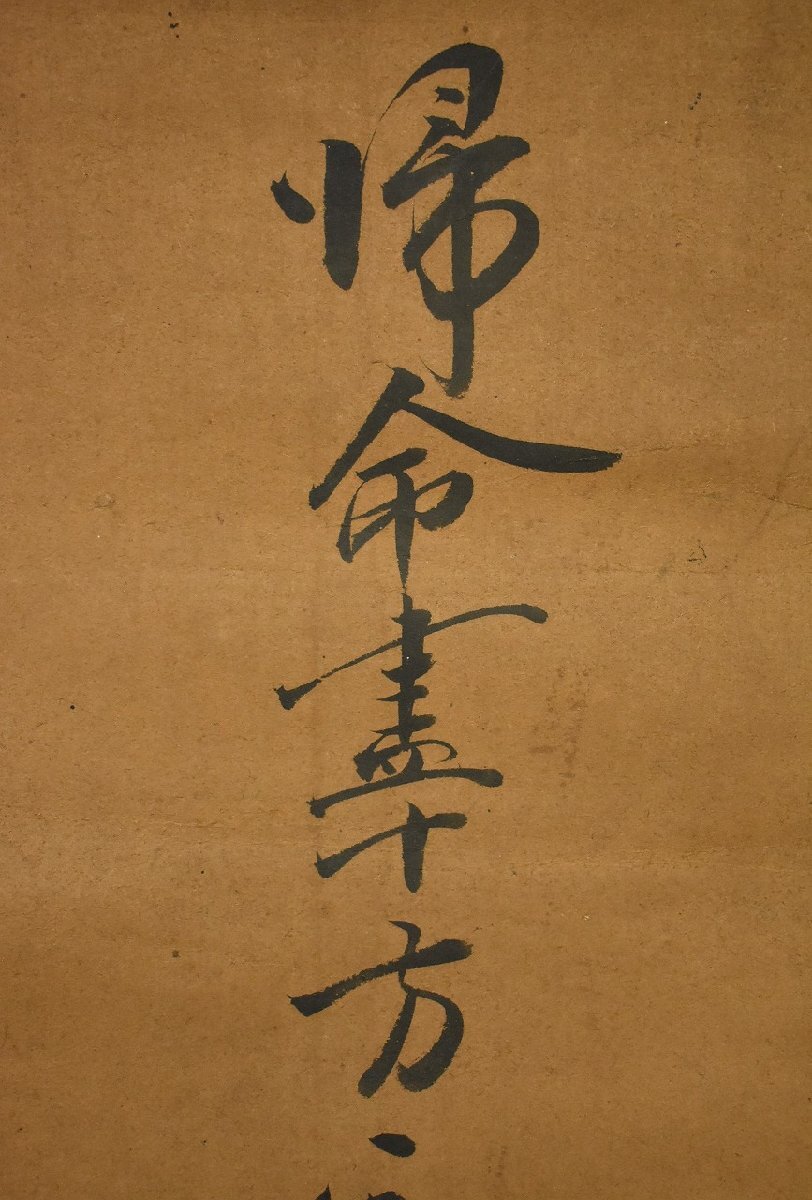 帰命盡十方